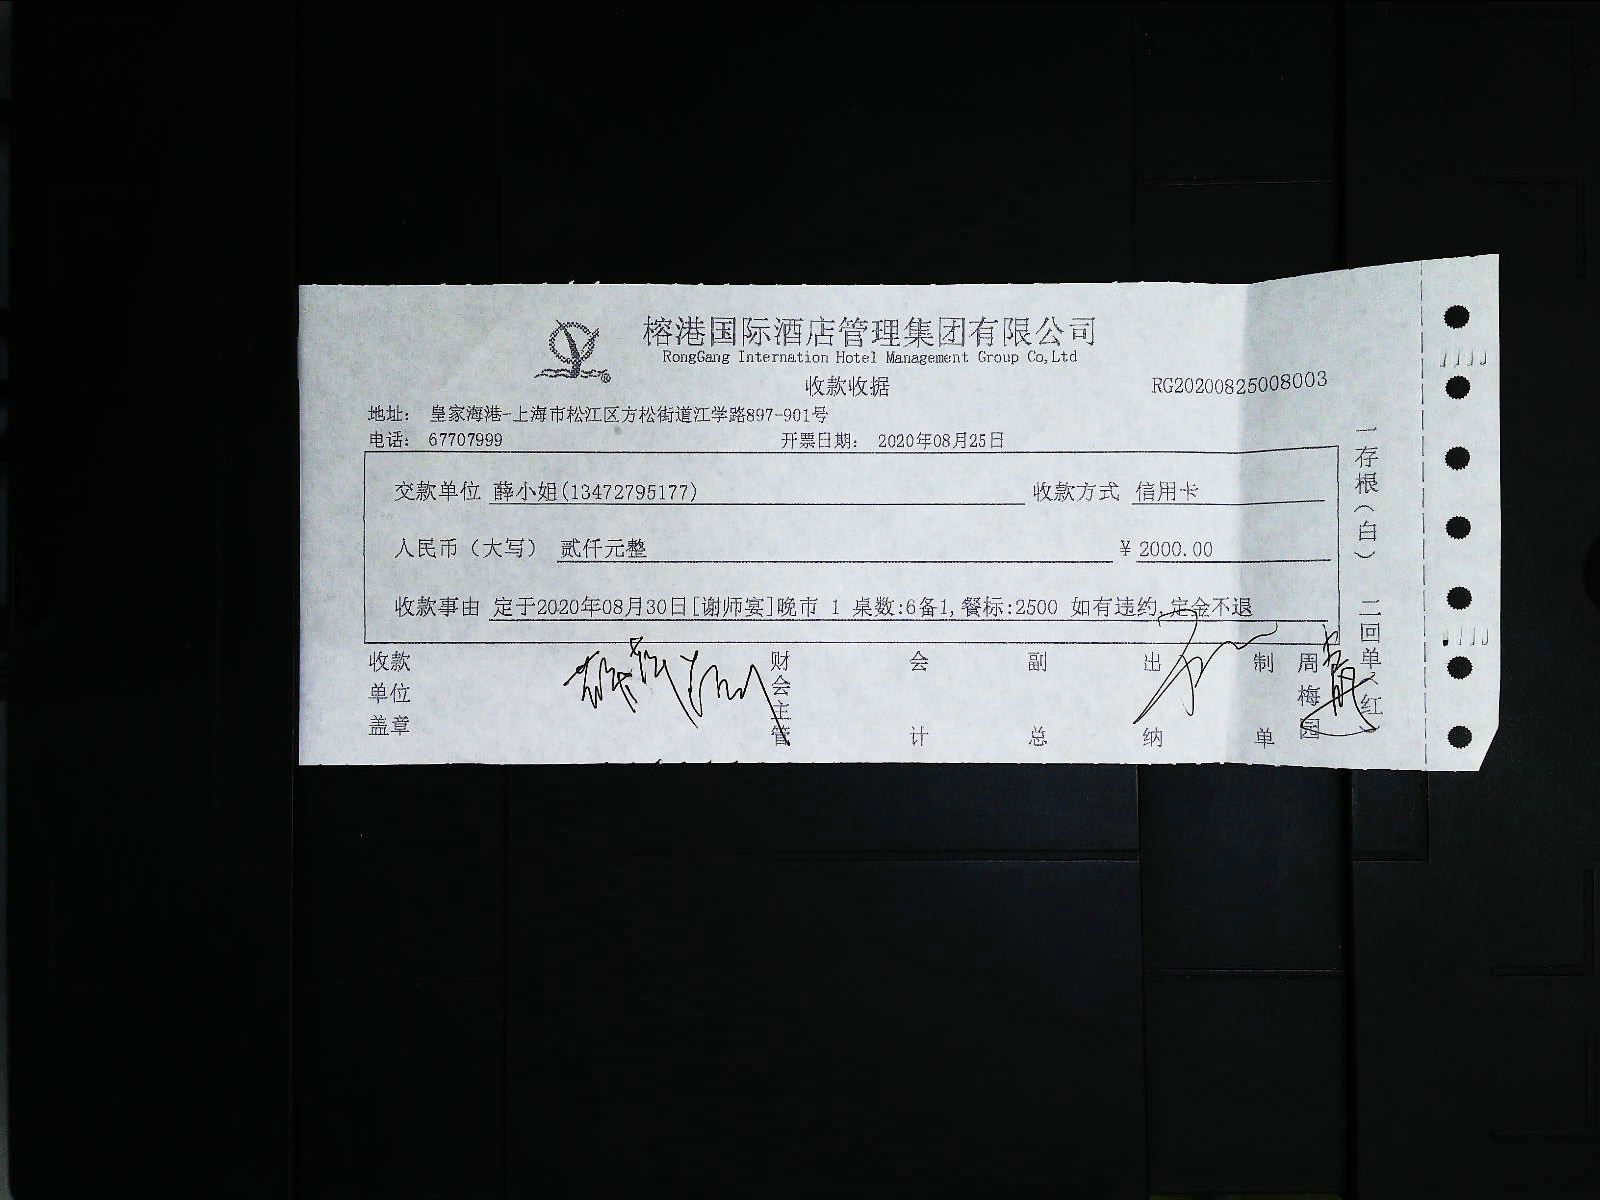 榕港国际酒店管理集团有限公司
RongGang Internation Hotel Management Group Co,Ltd
收款收据
RG20200825008003
地址: 皇家海港-上海市松江区方松街道江学路897-901号
电话: 67707999
开票日期: 2020年08月25日
交款单位 薛小姐(13472795177)
收款方式 信用卡
人民币（大写） 贰仟元整
¥ 2000.00
收款事由 定于2020年08月30日[谢师宴]晚市 1 桌数:6备1,餐标:2500 如有违约,定金不退
收款单位盖章
财会主管
会计
副总
出纳
制单
周梅园
一存根（白） 二回单（红）